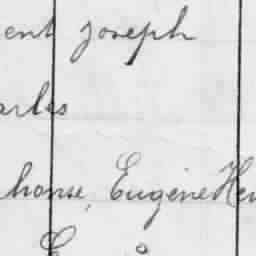 ent Joseph
arles
honse, Eugène Hen